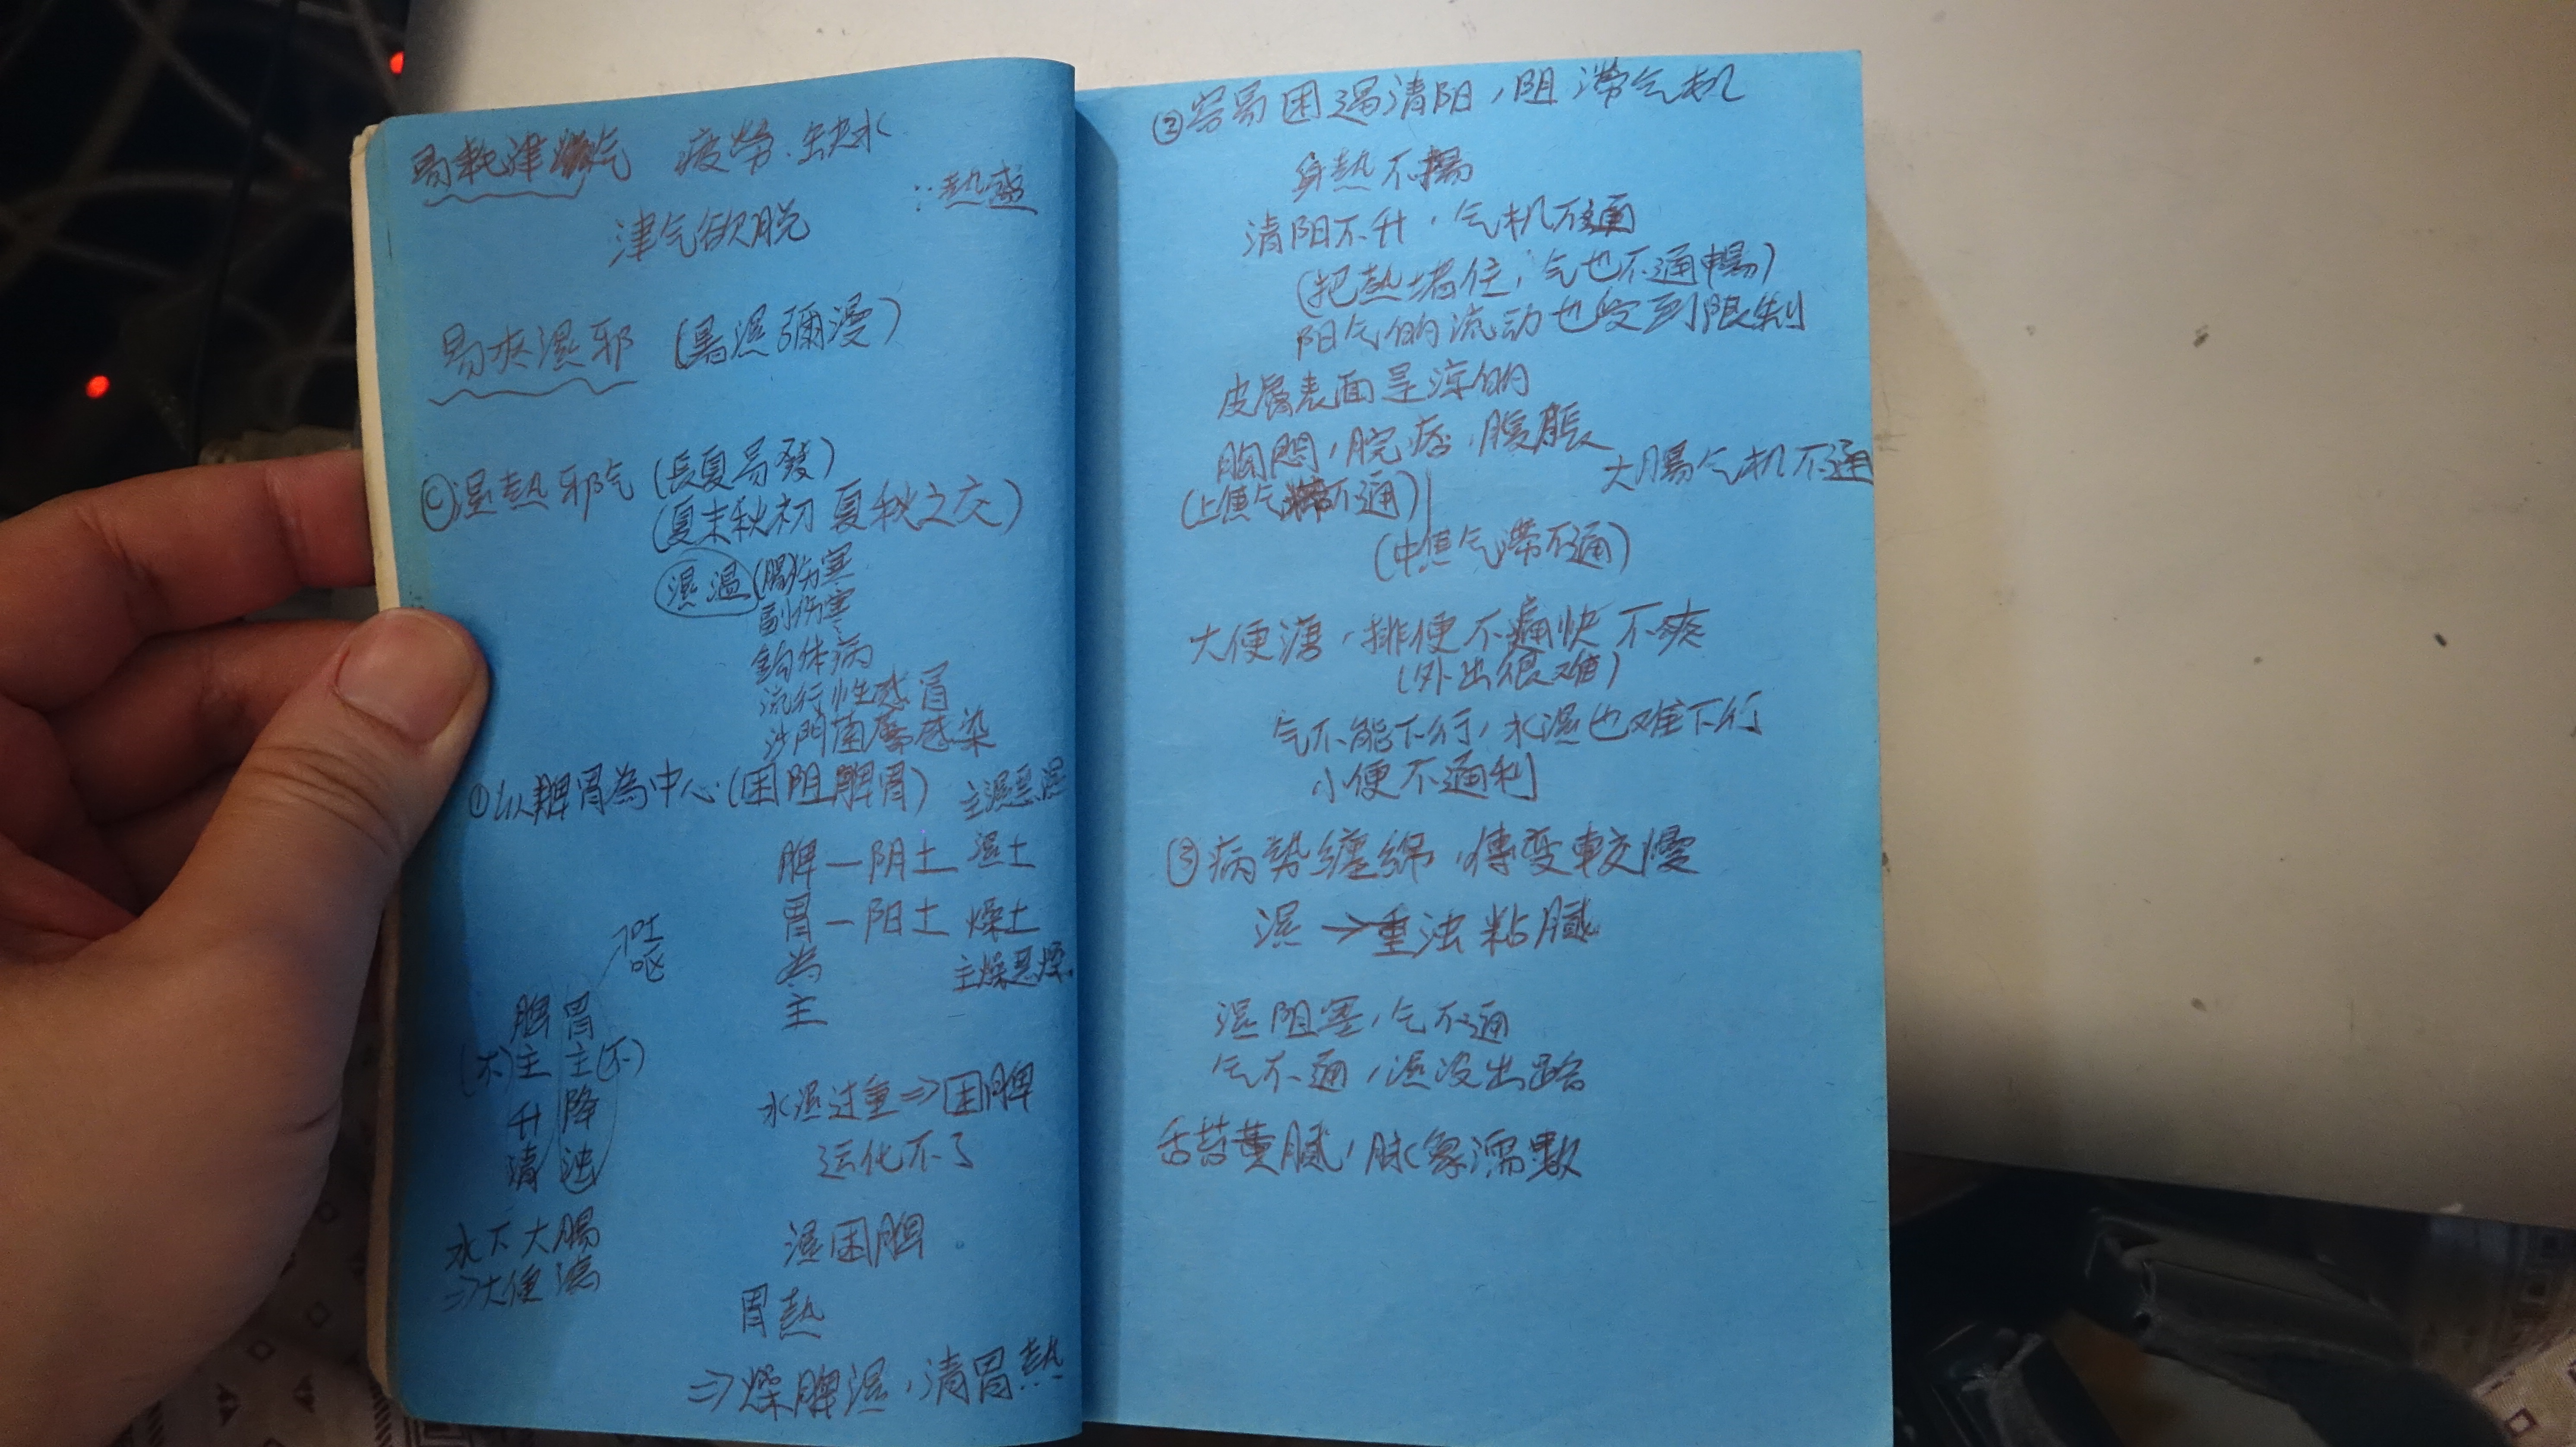 易耗津气 疲勞.缺水
∵熱盛
津气欲脱
易夾濕邪 (暑濕彌漫)
Ⓒ濕熱邪气 (長夏易發)
(夏末秋初 夏秋之交)
濕溫 (腸伤寒
副伤寒
鈎体病
流行性感冒
沙門菌屬感染
①以脾胃為中心.(困阻脾胃) 主濕惡濕
脾—阴土 濕土
胃—阳土 燥土
為 主燥惡燥
主
嘔吐
脾 胃
(不)主 主(不)
升 降
清 浊
水湿过重⇒困脾
运化不了
水下大腸
⇒大便溏
濕困脾
胃熱
⇒燥脾濕,清胃熱
②容易困遏清阳,阻滯气机
身熱不揚
清阳不升,气机不通
(把熱堵住,气也不通暢)
阳气的流动也受到限制
皮膚表面是涼的
胸悶,脘痞,腹脹
大腸气机不通
(上焦气不通)
(中焦气滯不通)
大便溏,排便不痛快 不爽
(外出很难)
气不能下行,水濕也难下行
小便不通利
③病势纏綿,傳变較慢
濕→重浊粘膩
濕阻塞,气不通
气不通,濕没出路
舌苔黄膩,脉象濡數